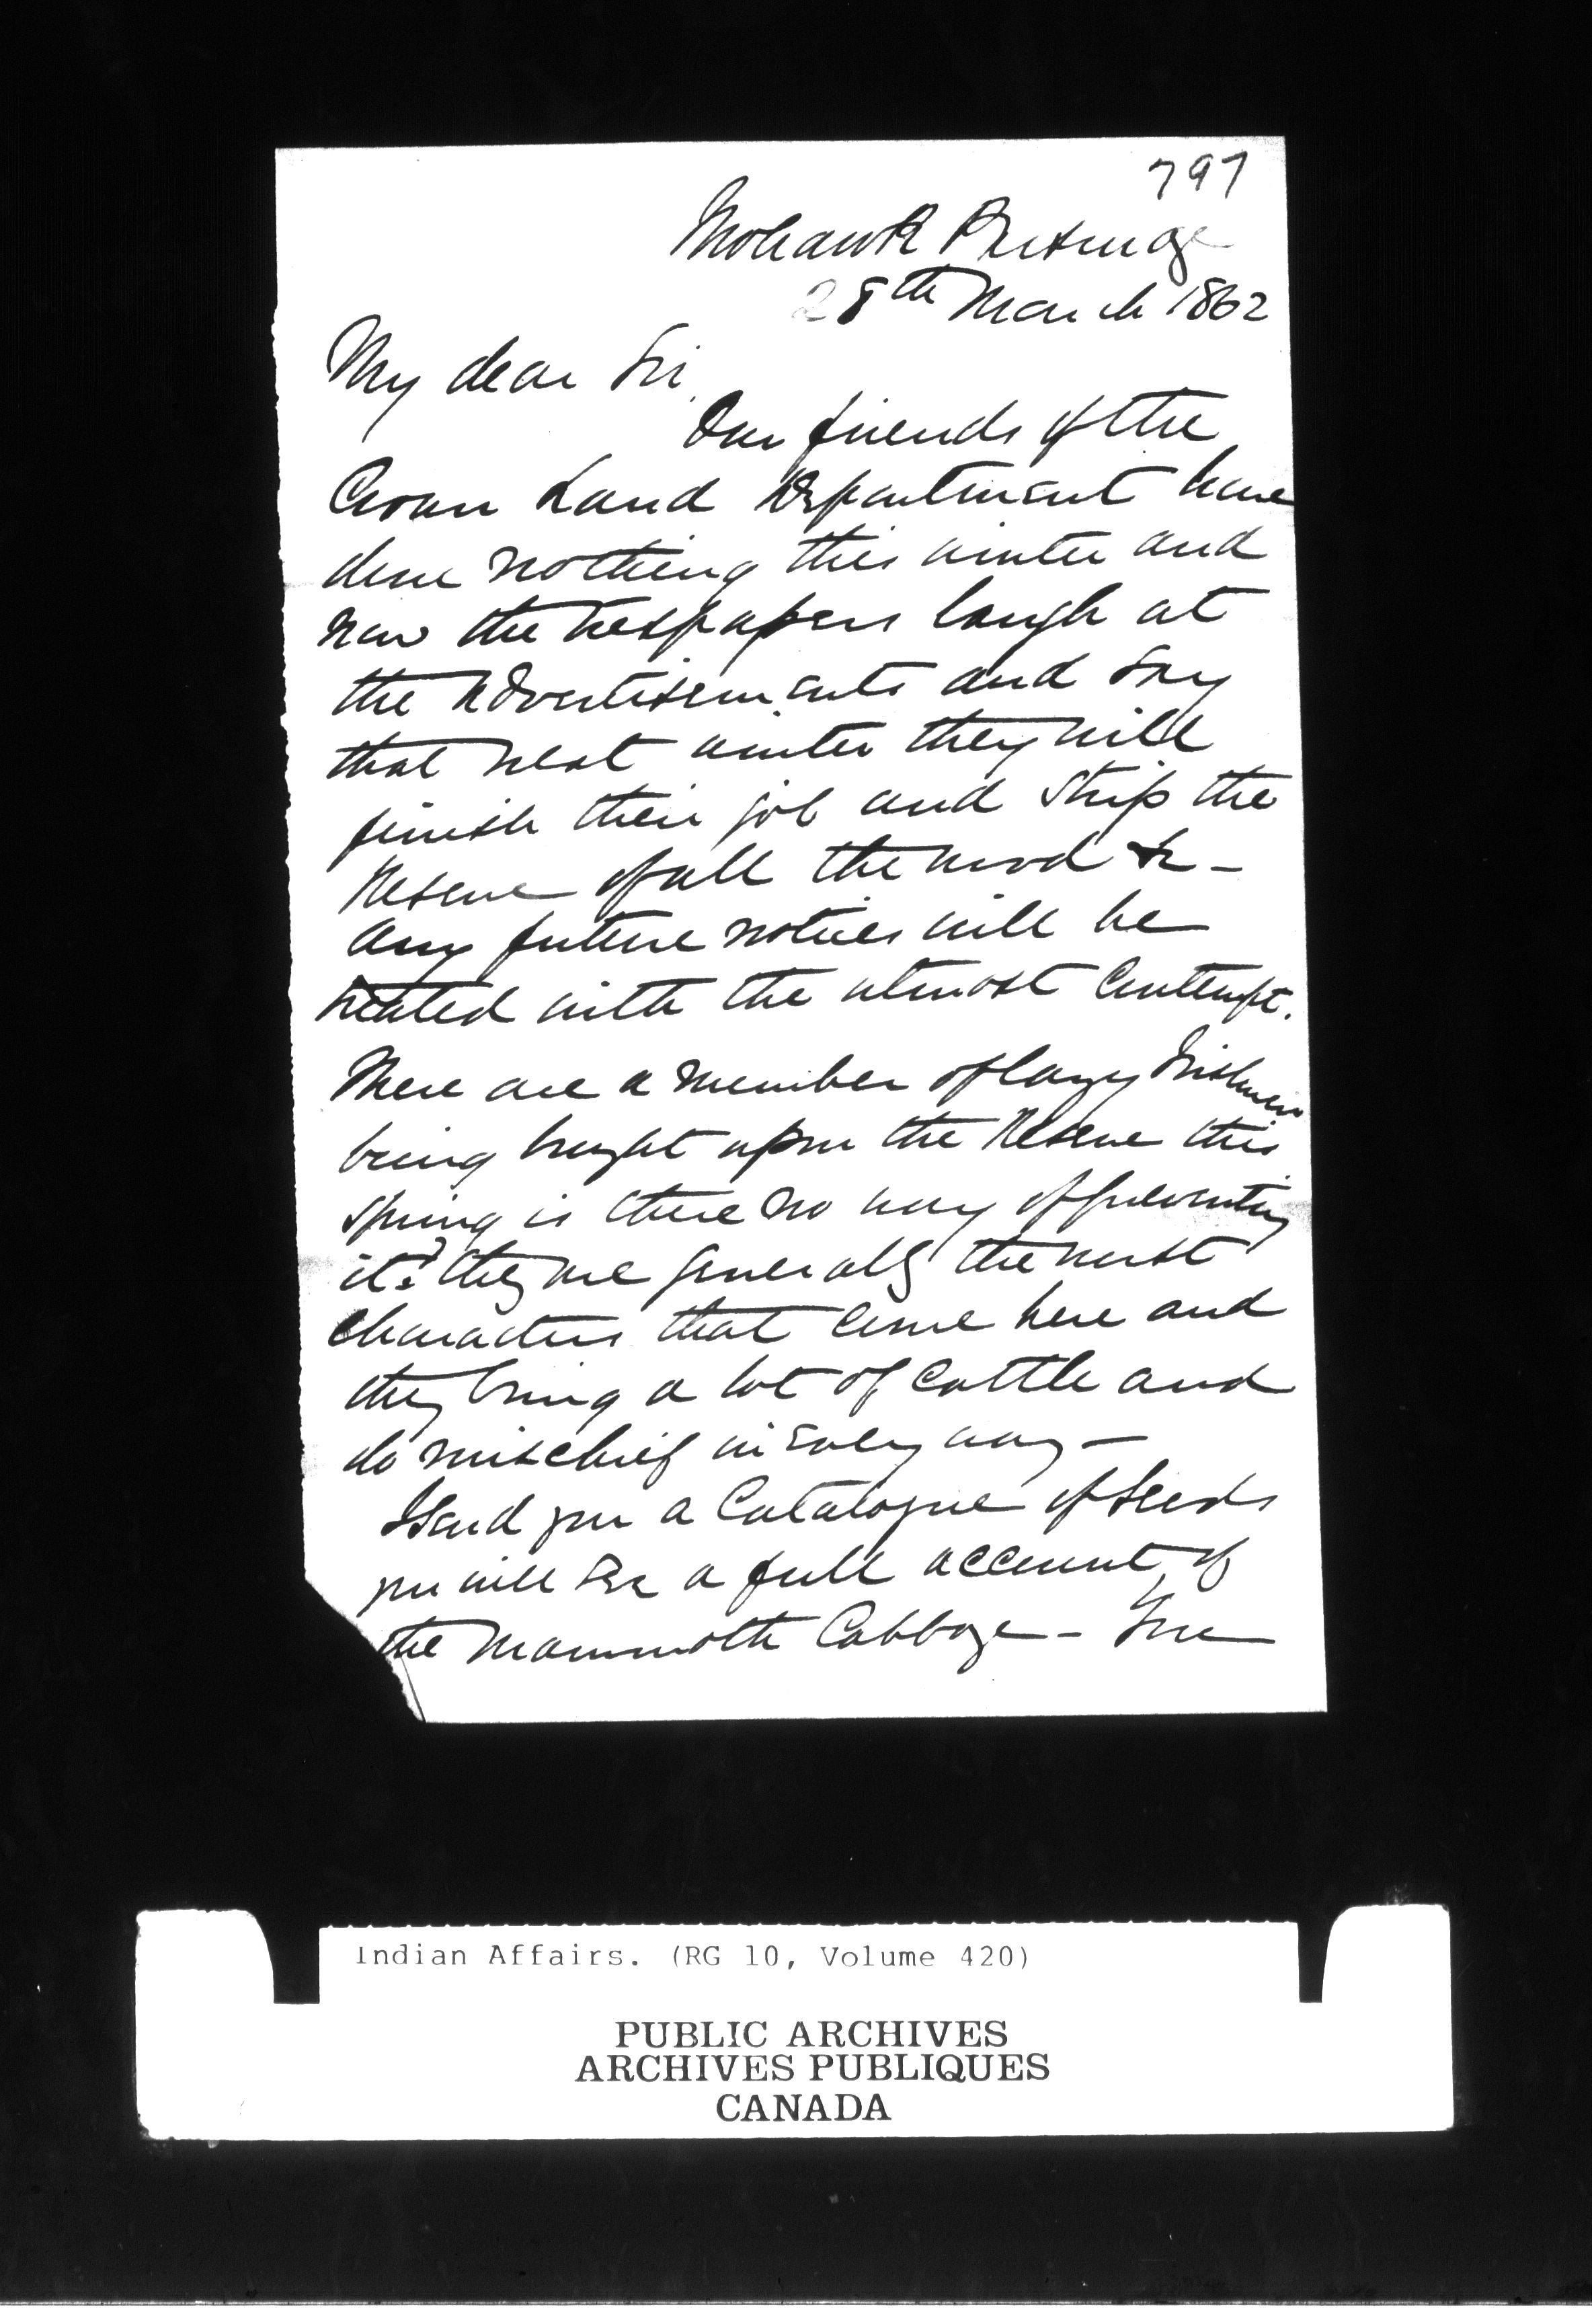 797
Mohawk Parsonage
28th March 1862
My dear Sir,
Our friends of the
Crown Land Department have
done nothing this winter and
now the trespassers laugh at
the advertisements and say
that next winter they will
finish their job and strip the
Reserve of all the wood &c -
Any future notices will be
treated with the utmost contempt.
There are a number of lazy Irishmen
being brought upon the Reserve this
Spring is there no way of preventing
it? they are generally the worst
characters that come here and
they bring a lot of cattle and
do mischief in every way -
I send you a Catalogue of Seeds
you will see a full account of
the Mammoth Cabbage -
Indian Affairs. (RG 10, Volume 420)
PUBLIC ARCHIVES
ARCHIVES PUBLIQUES
CANADA